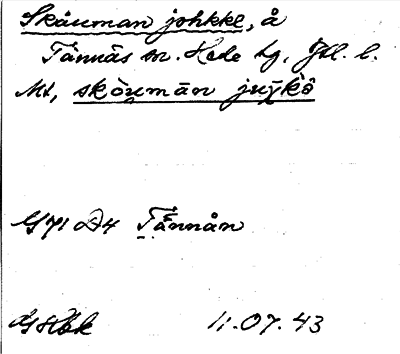 Skåuman johkke, å
Tännäs sn. Hede tg, Jtl. l.
Mt, skòu̯mān juχ̄kē̮
G71 D4 Tännån
11.07.43